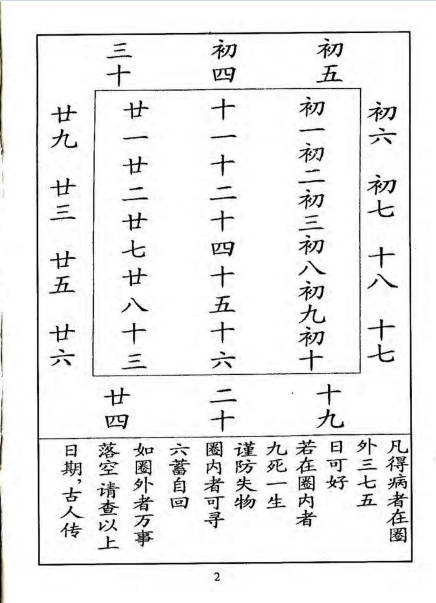 初六 初七 十八 十七
初五
初一初二初三初八初九初十
十九
初四
十一十二十四十五十六
二十
三十
廿一廿二廿七廿八十三
廿四
廿九 廿三 廿五 廿六
凡得病者在圈
外三七五
日可好
若在圈内者
九死一生
谨防失物
圈内者可寻
六蓄自回
如圈外者万事
落空请查以上
日期，古人传
2